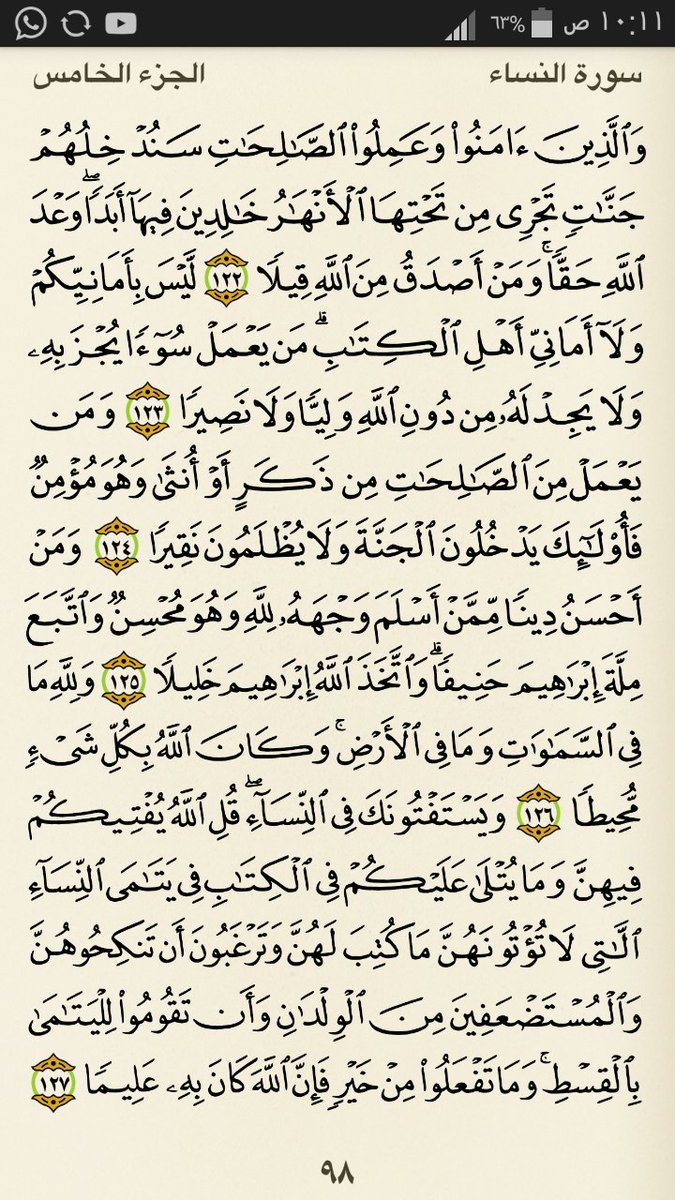 ١٠:١١ ص ٦٣%
سورة النساء الجزء الخامس
وَٱلَّذِينَ ءَامَنُوا۟ وَعَمِلُوا۟ ٱلصَّـٰلِحَـٰتِ سَنُدْخِلُهُمْ
جَنَّـٰتٍ تَجْرِى مِن تَحْتِهَا ٱلْأَنْهَـٰرُ خَـٰلِدِينَ فِيهَآ أَبَدًا ۖ وَعْدَ
ٱللَّهِ حَقًّا ۚ وَمَنْ أَصْدَقُ مِنَ ٱللَّهِ قِيلًا ١٢٢ لَّيْسَ بِأَمَانِيِّكُمْ
وَلَآ أَمَانِىِّ أَهْلِ ٱلْكِتَـٰبِ ۗ مَن يَعْمَلْ سُوٓءًا يُجْزَ بِهِۦ
وَلَا يَجِدْ لَهُۥ مِن دُونِ ٱللَّهِ وَلِيًّا وَلَا نَصِيرًا ١٢٣ وَمَن
يَعْمَلْ مِنَ ٱلصَّـٰلِحَـٰتِ مِن ذَكَرٍ أَوْ أُنثَىٰ وَهُوَ مُؤْمِنٌ
فَأُو۟لَـٰٓئِكَ يَدْخُلُونَ ٱلْجَنَّةَ وَلَا يُظْلَمُونَ نَقِيرًا ١٢٤ وَمَنْ
أَحْسَنُ دِينًا مِّمَّنْ أَسْلَمَ وَجْهَهُۥ لِلَّهِ وَهُوَ مُحْسِنٌ وَٱتَّبَعَ
مِلَّةَ إِبْرَٰهِيمَ حَنِيفًا ۗ وَٱتَّخَذَ ٱللَّهُ إِبْرَٰهِيمَ خَلِيلًا ١٢٥ وَلِلَّهِ مَا
فِى ٱلسَّمَـٰوَٰتِ وَمَا فِى ٱلْأَرْضِ ۚ وَكَانَ ٱللَّهُ بِكُلِّ شَىْءٍ
مُّحِيطًا ١٢٦ وَيَسْتَفْتُونَكَ فِى ٱلنِّسَآءِ ۖ قُلِ ٱللَّهُ يُفْتِيكُمْ
فِيهِنَّ وَمَا يُتْلَىٰ عَلَيْكُمْ فِى ٱلْكِتَـٰبِ فِى يَتَـٰمَى ٱلنِّسَآءِ
ٱلَّـٰتِى لَا تُؤْتُونَهُنَّ مَا كُتِبَ لَهُنَّ وَتَرْغَبُونَ أَن تَنكِحُوهُنَّ
وَٱلْمُسْتَضْعَفِينَ مِنَ ٱلْوِلْدَٰنِ وَأَن تَقُومُوا۟ لِلْيَتَـٰمَىٰ
بِٱلْقِسْطِ ۚ وَمَا تَفْعَلُوا۟ مِنْ خَيْرٍ فَإِنَّ ٱللَّهَ كَانَ بِهِۦ عَلِيمًا ١٢٧
٩٨